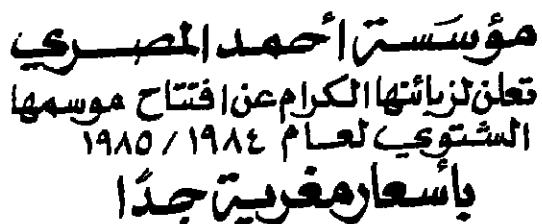 مؤسسة أحمد المصري
تعلن لزبائنها الكرام عن افتتاح موسمها
الشتوي لعام ١٩٨٤ / ١٩٨٥
بأسعار مغرية جدًا